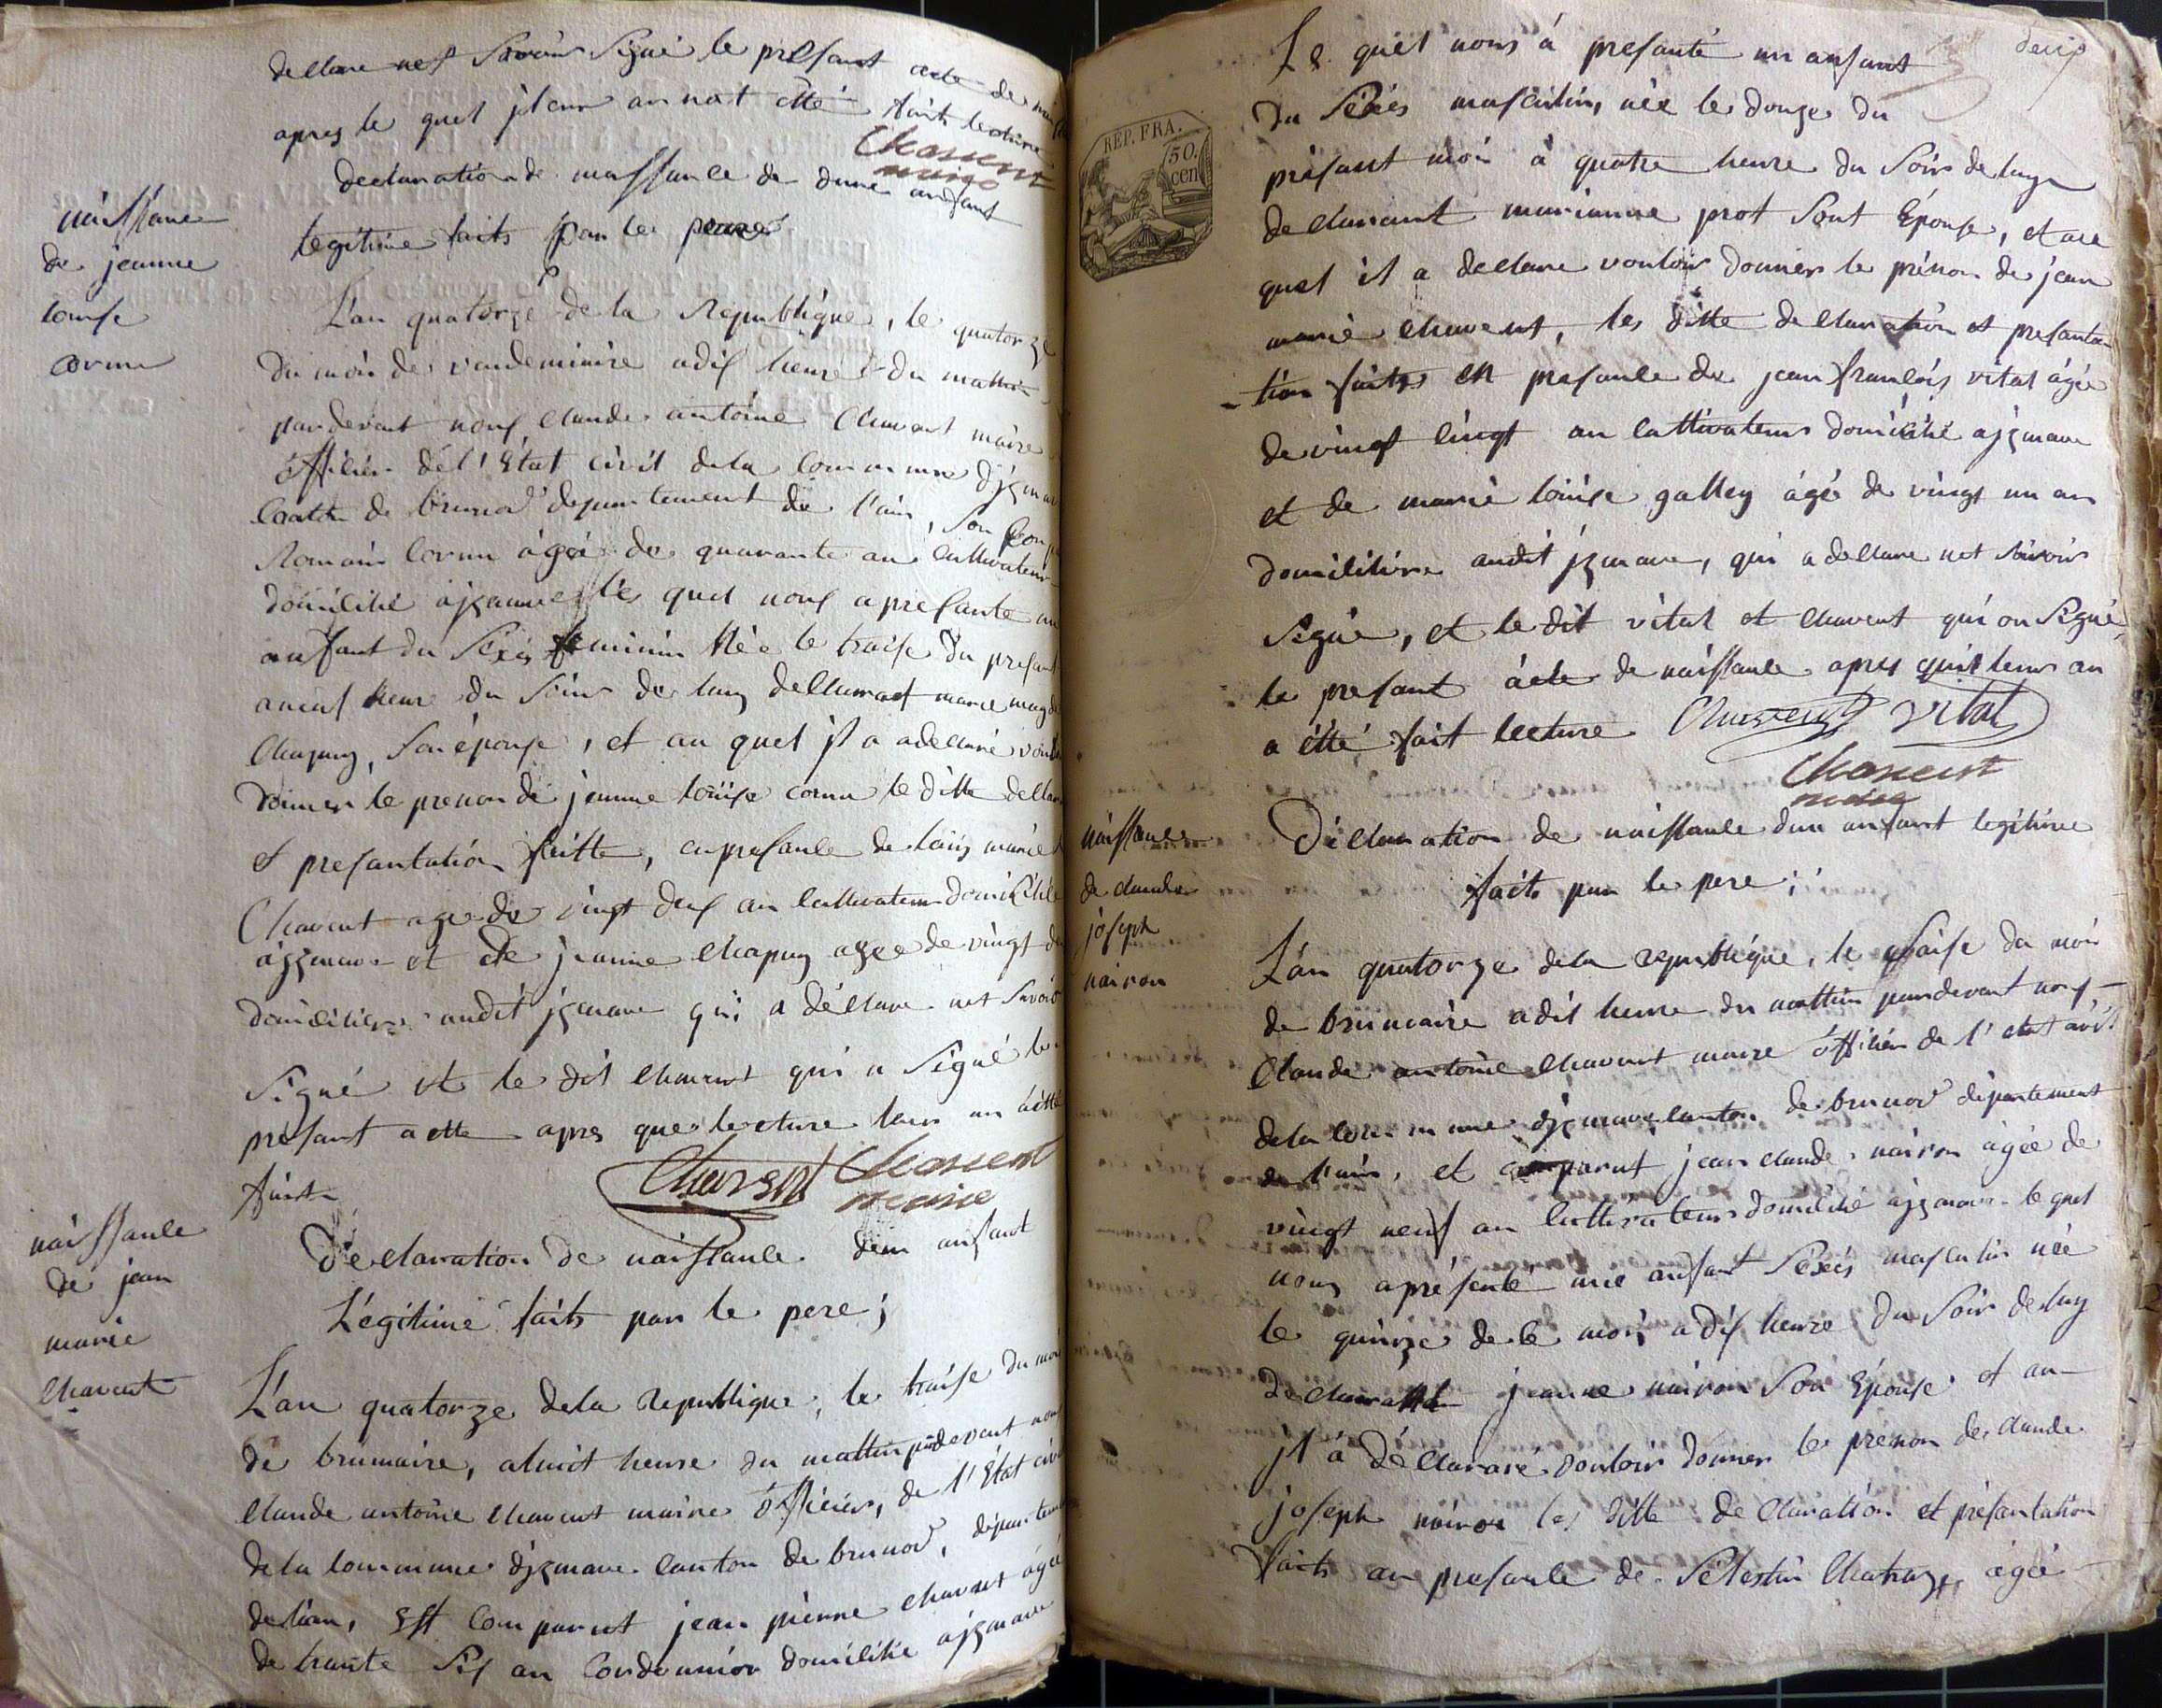 declare net Savoir Signé le presant acte de
apres le quel il leur an nat été faite lecture
Chavent
maire
declaration de naissance de dune anfant
legitime faits par le pere
naissance
de jeanne
louise
cornu
L'an quatorze de la Republique, le quatorze
du moi de vandemiaire a dix heure du mattin
pardevant nous claude antoine Chavent maire
officier de l'Etat civil de la commune d'izernave
canton de brenod departement de l'ain, son
Romain Cornu agé de quarante an cultivateur
domicilié a izernave les quel nous a presante un
anfant du Sexes feminin née le traise du presant
a neuf heure du Soir de luy declarant marie
Chapuy, Son épouse, et au quel il a adeclaré
donner le prenon de jeanne louise cornu le ditte
et presantation faitte, en presance de louis marie
Chavent age de vingt deux an cultivateur domicilié
a izernave et de jeanne chapuy agee de vingt
domiciliere audit izernave qui a déclare net Savoir
Signé et le dit chavent qui a Signé le
presant actte apres que lecture leur an
faite
Chavent Chavent
maire
naissance
de jean
marie
chavent
Declaration de naissance d'un anfant
Légitime faits par le pere;
L'an quatorze dela Republique, le traise du moi
de brumaire, a huit heure du mattin pardevant nous
claude antoine chavent maire officier, de l'Etat
dela commune d'izernave canton de brenod,
de lain, Est Comparut jean pierre chavent agée
de trante Six an Cordonnier domicilié a izernave
deux
Le quel nous á presanté un anfant
du Sexes masculin, née le douze du
présant moi à quatre heure du Soir de luy
declarant marianne prot Sont Epouse, et au
quel il a declare vouloir donner le prénon de jean
marie chavent, les ditte declaration et presanta
- tion faites en presance de jean françois vital ágée
de vingt cinq an cultivateur domicilié a izernave
et de marie louise galley ágé de vingt un an
domiciliére audit izernave, qui a declare net Savoir
Signé, et le dit vital et chavent qui on Signé
le presant ácte de naissance apres quil leur an
a étté fait lecture Chavent Vital
Chavent
maire
REP. FRA.
50.
cen
naissance
de claude
joseph
nairon
Déclaration de naissance dun anfant legitime
faits par le pere;
L'an quatorze dela republique, le
de brumaire a dix heure du mattin pardevant nous,
Claude antoine chavent maire officier de l'etat civil
dela commune d'izernave canton de brenod département
de l'ain, et comparut jean claude nairon ágée de
vingt neuf an cultivateur domicilié a izernave le quel
nous a présenté une anfant Sexes masculin née
le quinze de ce moi, a dix heure du Soir de luy
declarant jeanne nairon Son Epouse et au
il á déclararé vouloir donner le prénon de claude
joseph nairon les ditte declaration et présantation
faits an presance de Sélestin ágée